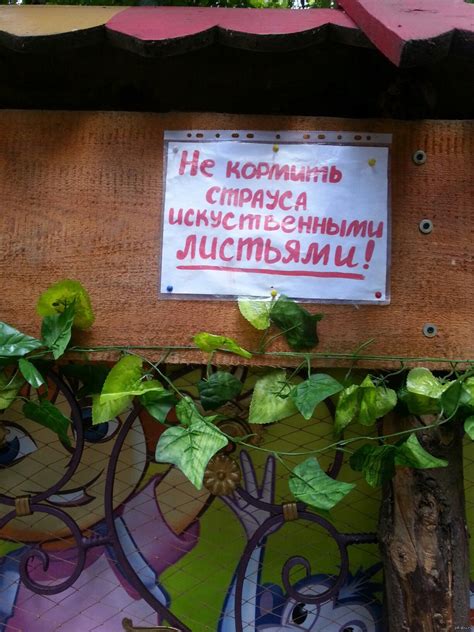 Не кормить
страуса
искуственными
листьями!